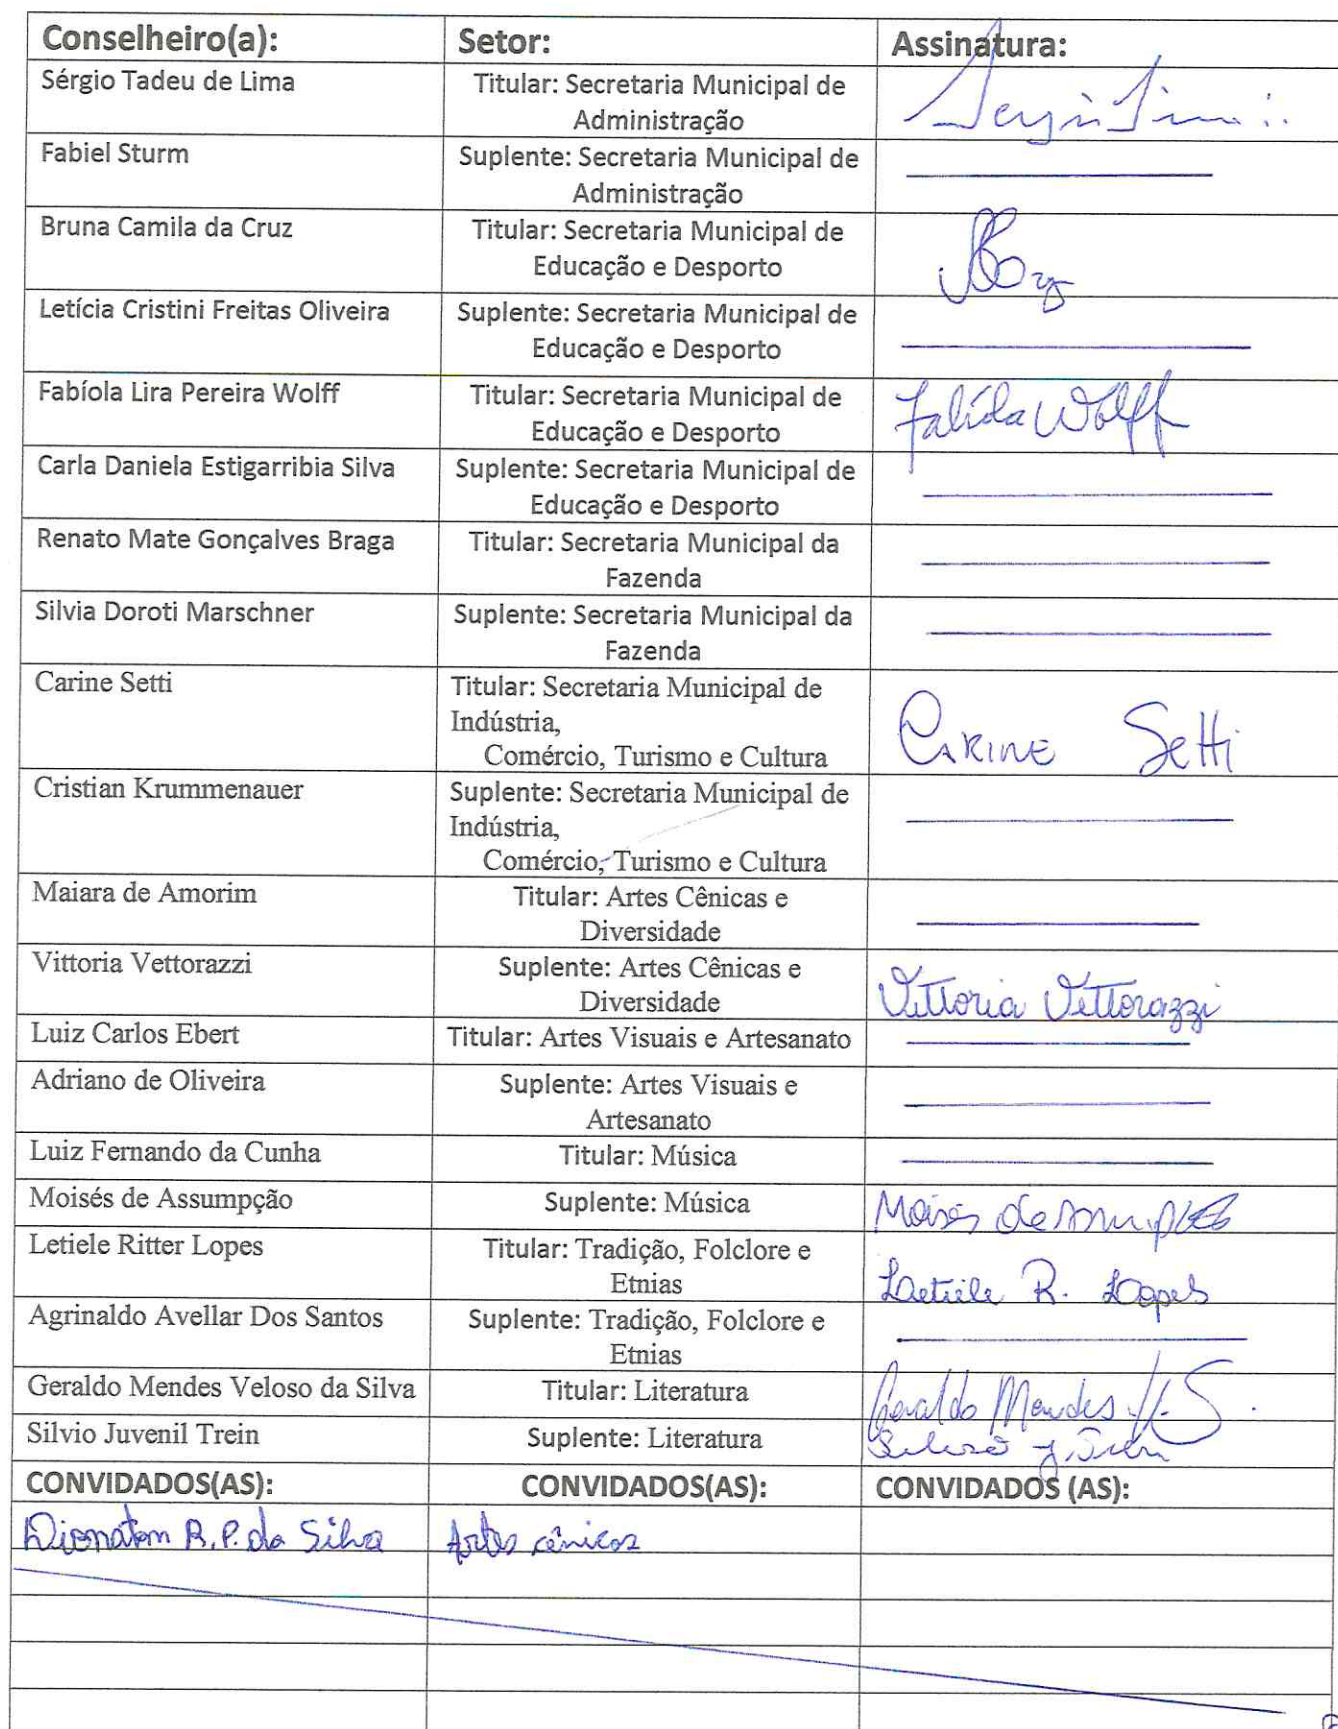 Conselheiro(a): Setor: Assinatura:
Sérgio Tadeu de Lima Titular: Secretaria Municipal de
Administração
Fabiel Sturm Suplente: Secretaria Municipal de
Administração
Bruna Camila da Cruz Titular: Secretaria Municipal de
Educação e Desporto
Letícia Cristini Freitas Oliveira Suplente: Secretaria Municipal de
Educação e Desporto
Fabíola Lira Pereira Wolff Titular: Secretaria Municipal de
Educação e Desporto Wolff
Carla Daniela Estigarribia Silva Suplente: Secretaria Municipal de
Educação e Desporto
Renato Mate Gonçalves Braga Titular: Secretaria Municipal da
Fazenda
Silvia Doroti Marschner Suplente: Secretaria Municipal da
Fazenda
Carine Setti Titular: Secretaria Municipal de
Indústria,
Comércio, Turismo e Cultura CARINE Setti
Cristian Krummenauer Suplente: Secretaria Municipal de
Indústria,
Comércio, Turismo e Cultura
Maiara de Amorim Titular: Artes Cênicas e
Diversidade
Vittoria Vettorazzi Suplente: Artes Cênicas e
Diversidade Vittoria Vettorazzi
Luiz Carlos Ebert Titular: Artes Visuais e Artesanato
Adriano de Oliveira Suplente: Artes Visuais e
Artesanato
Luiz Fernando da Cunha Titular: Música
Moisés de Assumpção Suplente: Música
Letiele Ritter Lopes Titular: Tradição, Folclore e
Etnias Letiele R. Lopes
Agrinaldo Avellar Dos Santos Suplente: Tradição, Folclore e
Etnias
Geraldo Mendes Veloso da Silva Titular: Literatura Geraldo Mendes
Silvio Juvenil Trein Suplente: Literatura
CONVIDADOS(AS): CONVIDADOS(AS): CONVIDADOS (AS):
Dionatam R. P. da Silva Artes cênicas